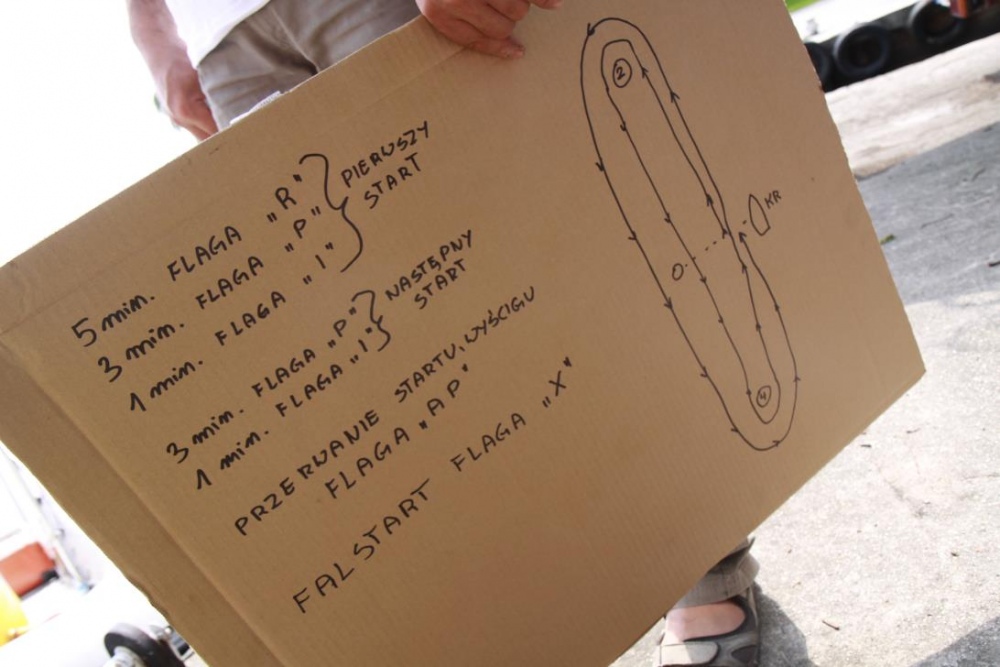 5 min. FLAGA „R"
3 min. FLAGA „P"
1 min. FLAGA „I"
PIERWSZY
START
3 min. FLAGA „P"
1 min. FLAGA „I"
NASTĘPNY
START
PRZERWANIE STARTU, WYŚCIGU
FLAGA „AP"
FALSTART FLAGA „X"
2
KR
4